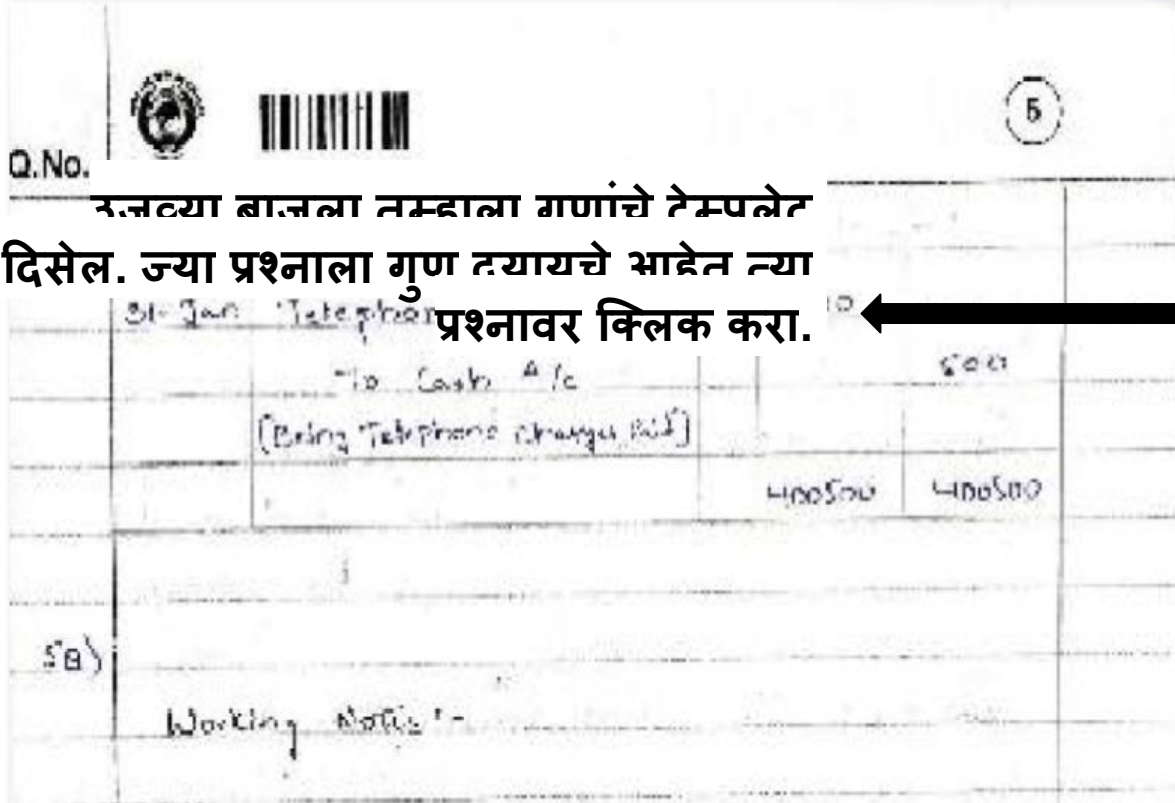 5
Q.No.
उजव्या बाजूला तुम्हाला गुणांचे टेम्पलेट
दिसेल. ज्या प्रश्नाला गुण द्यायचे आहेत त्या
प्रश्नावर क्लिक करा.
31-Jan Telephon
To Cash A/c 500
(Being Telephone charges Paid)
400500 400500
5B)
Working Notes :-